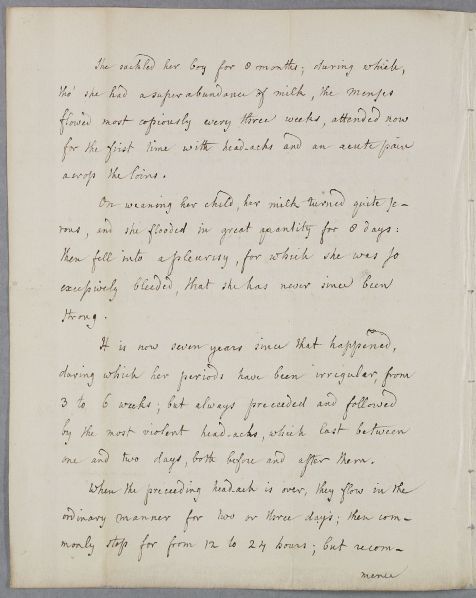 She suckled her boy for 8 months; during which,
tho' she had a superabundance of milk, the menses
flowed most copiously every three weeks, attended now
for the first time with head-achs and an acute pain
across the loins.
On weaning her child, her milk turned quite se-
rous, and she flooded in great quantity for 8 days:
then fell into a pleurisy, for which she was so
excessively bleeded, that she has never since been
strong.
It is now seven years since that happened,
during which her periods have been irregular, from
3 to 6 weeks; but always preceeded and followed
by the most violent head-achs, which last between
one and two days, both before and after them.
When the preceeding headach is over, they flow in the
ordinary manner for two or three days; then com-
monly stop for from 12 to 24 hours; but recom-
mence